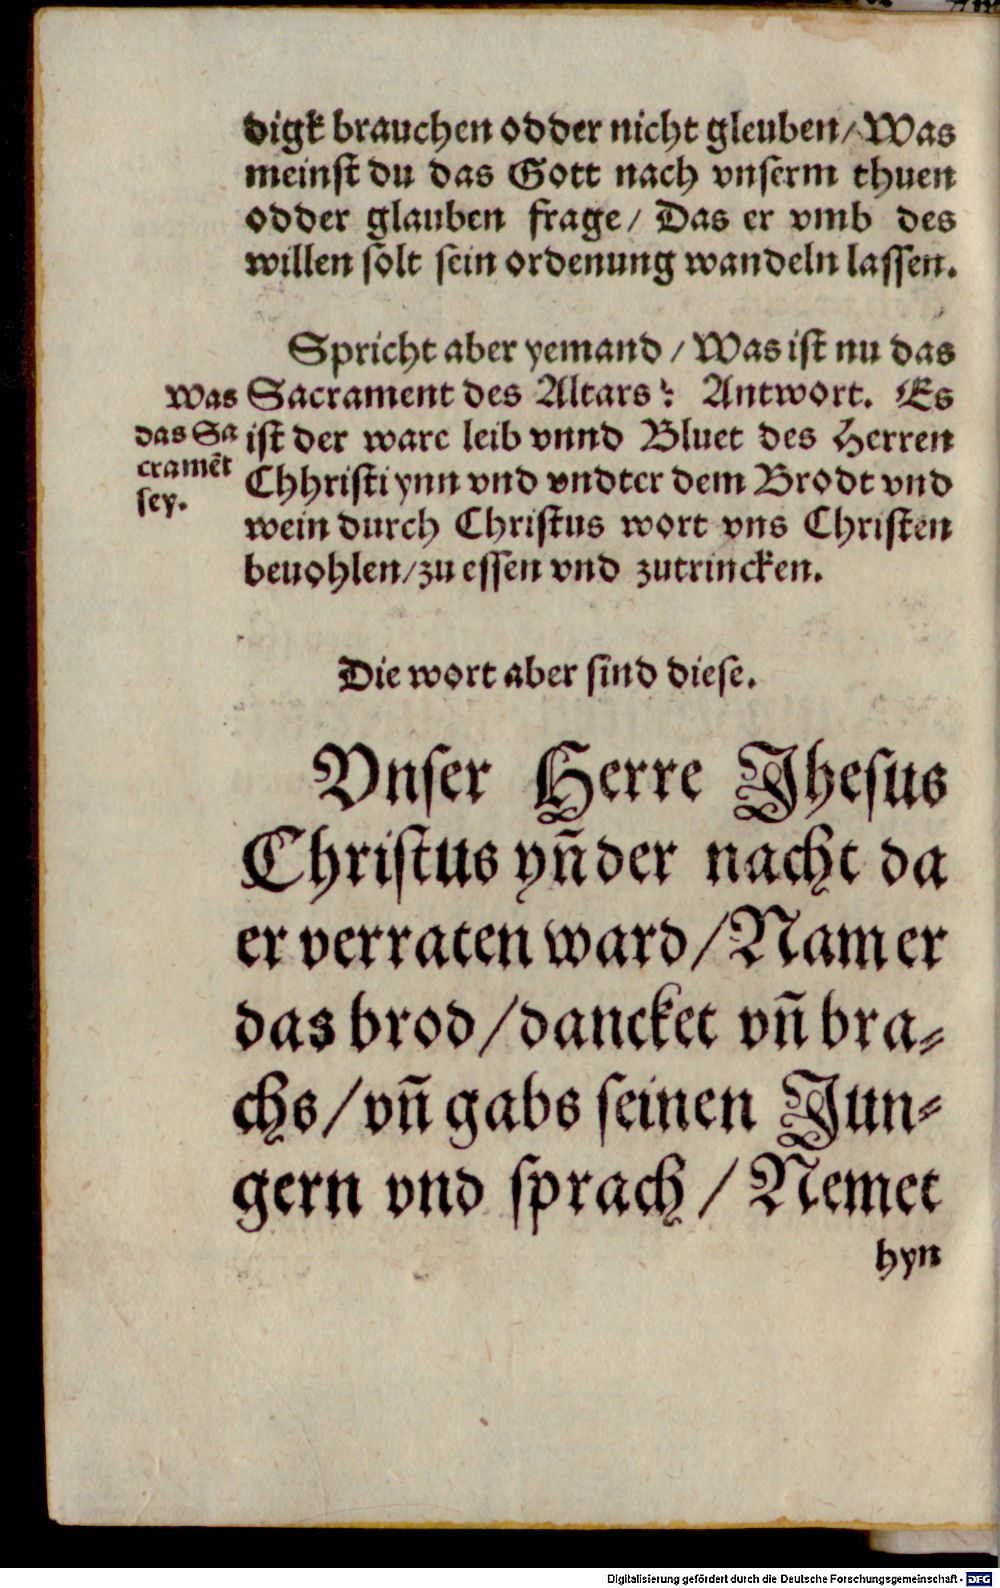 digk brauchen odder nicht gleuben/ Was
meinst du das Gott nach vnserm thuen
odder glauben frage/ Das er vmb des
willen solt sein ordenung wandeln lassen.
Spricht aber yemand / Was ist nu das
Sacrament des Altars? Antwort. Es
ist der ware leib vnnd Bluet des Herren
Chhristi ynn vnd vndter dem Brodt vnd
wein durch Christus wort vns Christen
beuohlen/zu essen vnd zutrincken.
Was
das Sa
cramēt
sey.
Die wort aber sind diese.
Vnser Herre Jhesus
Christus yn̄ der nacht da
er verraten ward/Nam er
das brod/dancket vn̄ bra⸗
chs/vn̄ gabs seinen Jun⸗
gern vnd sprach/Nemet
hyn
Digitalisierung gefördert durch die Deutsche Forschungsgemeinschaft - DFG